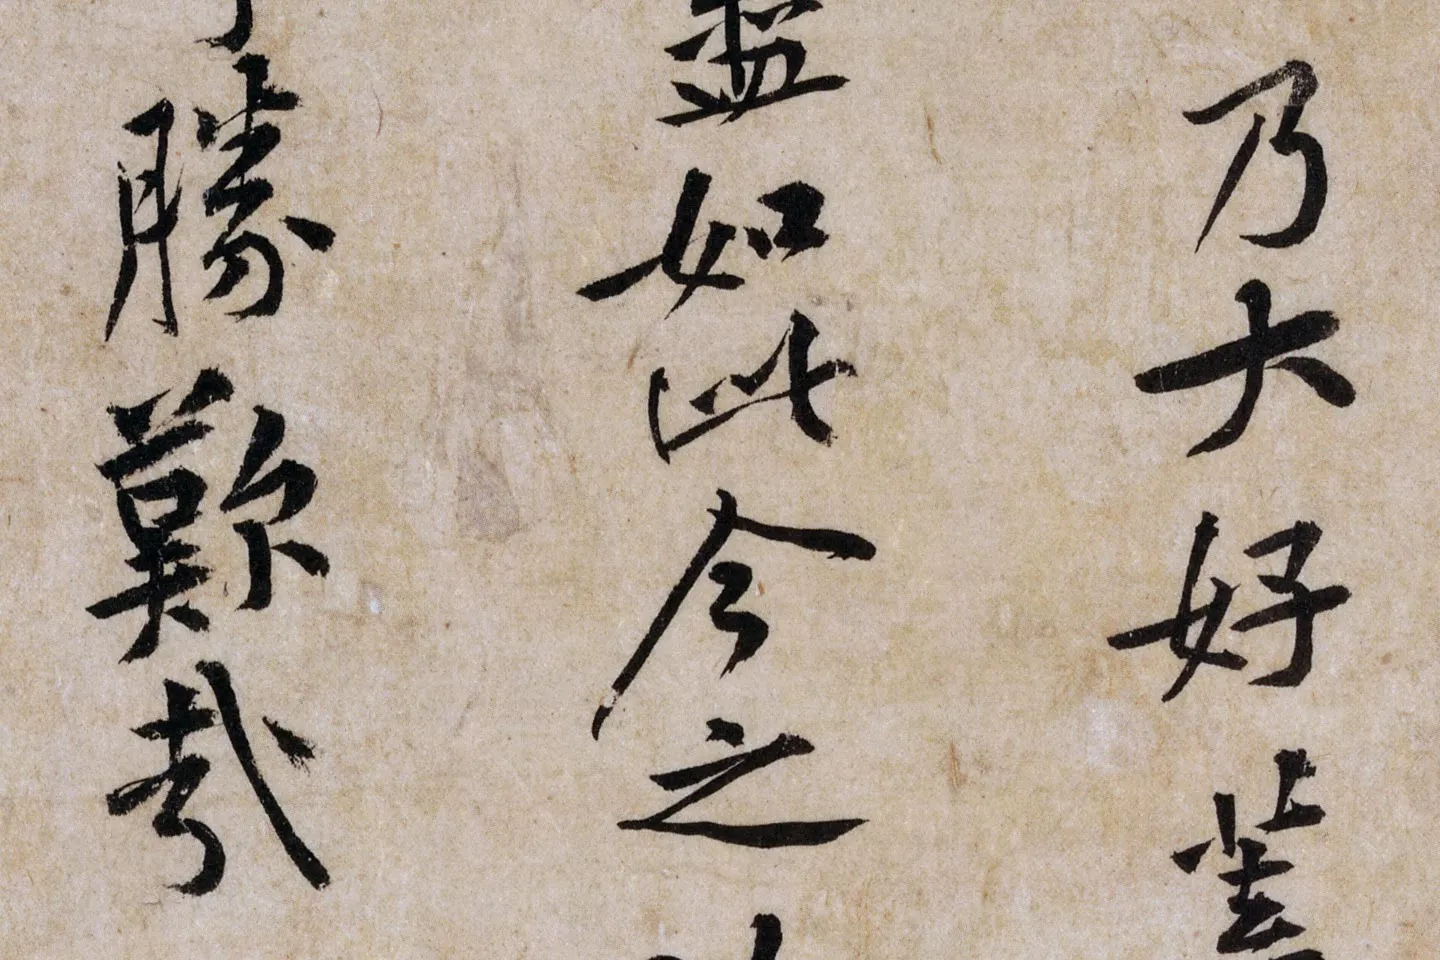 乃大好
盛如此今之
勝歎哉